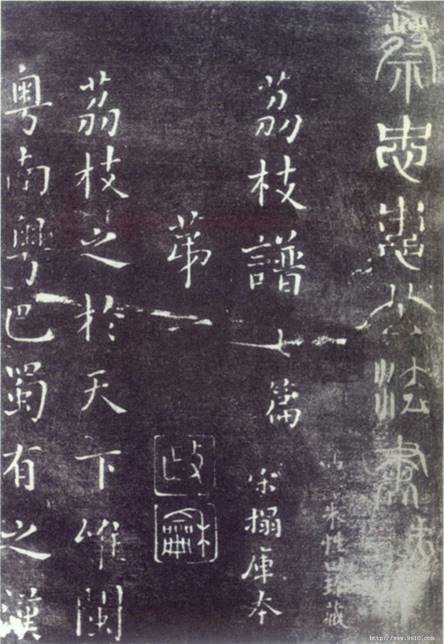 蔡忠惠公法書
珍藏
荔枝譜七篇 宋搨庫本
第一
荔枝之於天下唯閩
粤南粤巴蜀有之漢
http://www.9610.com